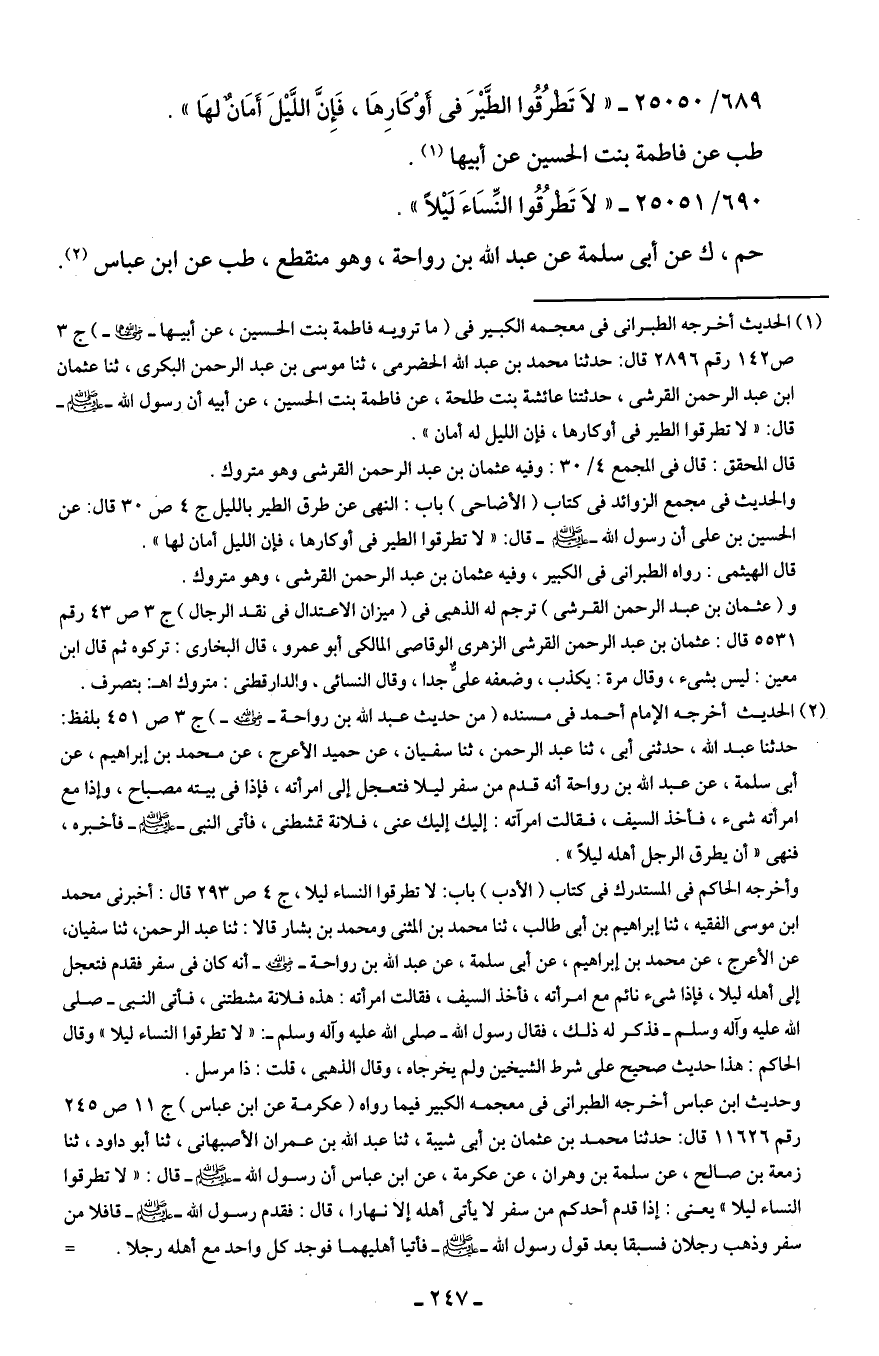 ٦٨٩/ ٢٥٠٥٠ ـ « لاَ تَطْرُقُوا الطَّيْرَ فى أَوْكَارِهَا ، فَإِنَّ اللَّيْلَ أَمَانٌ لهَا » .
طب عن فاطمة بنت الحسين عن أبيها (١) .
٦٩٠/ ٢٥٠٥١ ـ « لاَ تَطْرُقُوا النِّسَاءَ لَيْلاً » .
حم ، ك عن أبى سلمة عن عبد الله بن رواحة ، وهو منقطع ، طب عن ابن عباس (٢).
(١) الحديث أخرجه الطبرانى فى معجمه الكبير فى ( ما ترويه فاطمة بنت الحسين ، عن أبيها ـ رضي الله عنهما ـ ) ج ٣
ص١٤٢ رقم ٢٨٩٦ قال: حدثنا محمد بن عبد الله الحضرمى ، ثنا موسى بن عبد الرحمن البكرى ، ثنا عثمان
ابن عبد الرحمن القرشى ، حدثتنا عائشة بنت طلحة ، عن فاطمة بنت الحسين ، عن أبيه أن رسول الله ـ ﷺ ـ
قال: « لا تطرقوا الطير فى أوكارها ، فإن الليل له أمان » .
قال المحقق : قال فى المجمع ٤/ ٣٠ : وفيه عثمان بن عبد الرحمن القرشى وهو متروك .
والحديث فى مجمع الزوائد فى كتاب ( الأضاحى ) باب : النهى عن طرق الطير بالليل ج ٤ ص ٣٠ قال: عن
الحسين بن على أن رسول الله ـ ﷺ ـ قال: « لا تطرقوا الطير فى أوكارها ، فإن الليل أمان لها » .
قال الهيثمى : رواه الطبرانى فى الكبير ، وفيه عثمان بن عبد الرحمن القرشى ، وهو متروك .
و ( عثمان بن عبد الرحمن القرشى ) ترجم له الذهبى فى ( ميزان الاعتدال فى نقد الرجال ) ج ٣ ص ٤٣ رقم
٥٥٣١ قال : عثمان بن عبد الرحمن القرشى الزهرى الوقاصى المالكى أبو عمرو ، قال البخارى : تركوه ثم قال ابن
معين : ليس بشىء ، وقال مرة : يكذب ، وضعفه علىٌّ جدا ، وقال النسائى ، والدارقطنى : متروك اهـ: بتصرف .
(٢) الحديث أخرجه الإمام أحمد فى مسنده ( من حديث عبد الله بن رواحة ـ رضي الله عنه ـ ) ج ٣ ص ٤٥١ بلفظ:
حدثنا عبد الله ، حدثنى أبى ، ثنا عبد الرحمن ، ثنا سفيان ، عن حميد الأعرج ، عن محمد بن إبراهيم ، عن
أبى سلمة ، عن عبد الله بن رواحة أنه قدم من سفر ليلا فتعجل إلى امرأته ، فإذا فى بيته مصباح ، وإذا مع
امرأته شىء ، فأخذ السيف ، فقالت امرآته : إليك إليك عنى ، فلانة تمشطنى ، فأتى النبى ـ ﷺ ـ فأخبره ،
فنهى « أن يطرق الرجل أهله ليلاً » .
وأخرجه الحاكم فى المستدرك فى كتاب ( الأدب ) باب: لا تطرقوا النساء ليلا ، ج ٤ ص ٢٩٣ قال : أخبرنى محمد
ابن موسى الفقيه ، ثنا إبراهيم بن أبى طالب ، ثنا محمد بن المثنى ومحمد بن بشار قالا : ثنا عبد الرحمن، ثنا سفيان،
عن الأعرج ، عن محمد بن إبراهيم ، عن أبى سلمة ، عن عبد الله بن رواحة ـ رضي الله عنه ـ أنه كان فى سفر فقدم فتعجل
إلى أهله ليلا ، فإذا شىء نائم مع امرأته ، فأخذ السيف ، فقالت امرأته : هذه فلانة مشطتنى ، فأتى النبى ـ صلى
الله عليه وآله وسلم ـ فذكر له ذلك ، فقال رسول الله ـ صلى الله عليه وآله وسلم ـ: « لا تطرقوا النساء ليلا » وقال
الحاكم : هذا حديث صحيح على شرط الشيخين ولم يخرجاه ، وقال الذهبى ، قلت : ذا مرسل .
وحديث ابن عباس أخرجه الطبرانى فى معجمه الكبير فيما رواه ( عكرمة عن ابن عباس ) ج ١١ ص ٢٤٥
رقم ١١٦٢٦ قال: حدثنا محمد بن عثمان بن أبى شيبة ، ثنا عبد الله بن عمران الأصبهانى ، ثنا أبو داود ، ثنا
زمعة بن صالح ، عن سلمة بن وهران ، عن عكرمة ، عن ابن عباس أن رسول الله ـ ﷺ ـ قال : « لا تطرقوا
النساء ليلا » يعنى : إذا قدم أحدكم من سفر لا يأتى أهله إلا نهارا ، قال : فقدم رسول الله ـ ﷺ ـ قافلا من
سفر وذهب رجلان فسبقا بعد قول رسول الله ـ ﷺ ـ فأتيا أهليهما فوجد كل واحد مع أهله رجلا . =
ـ ٢٤٧ ـ